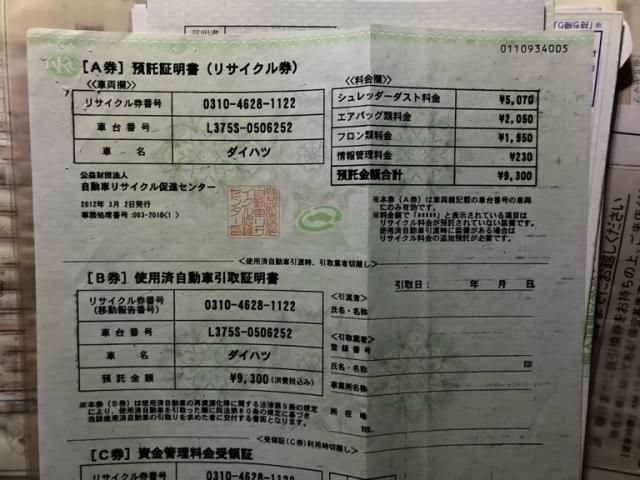 0110934005
[A券] 預託証明書 (リサイクル券)
<<車両欄>>
リサイクル券番号 0310-4628-1122
車台番号 L375S-0506252
車名 ダイハツ
<<料金欄>>
シュレッダーダスト料金 ¥5,070
エアバッグ類料金 ¥2,050
フロン類料金 ¥1,950
情報管理料金 ¥230
預託金額合計 ¥9,300
公益財団法人
自動車リサイクル促進センター
2012年 3月 2日発行
事務処理番号:003-2010(1 )
※本券（A券）は車両欄記載の車台番号の車両
にのみ有効です。
※料金欄で「*****」と表示されている項目は
リサイクル料金が預託されていない装備です。
使用済自動車引渡時に装備がある場合は
リサイクル料金の追加預託が必要です。
<使用済自動車引渡時、引取業者切離し>
[B券] 使用済自動車引取証明書
引取日: 年 月 日
リサイクル券番号
(移動報告番号) 0310-4628-1122
車台番号 L375S-0506252
車名 ダイハツ
預託金額 ¥9,300(消費税込み)
<引渡者>
氏名・名称
<引取業者>
登録番号
氏名・名称 印
事業所名称
所在地
TEL
※本券（B券）は使用済自動車の再資源化等に関する法律第9条の規定
により、使用済自動車を引取った際に同法第80条の規定に基づき
当該使用済自動車の引取りを求めた者に交付する書面となります。
<受領証(C券)利用時切離し>
[C券] 資金管理料金受領証
リサイクル券番号 0310-4628-1122